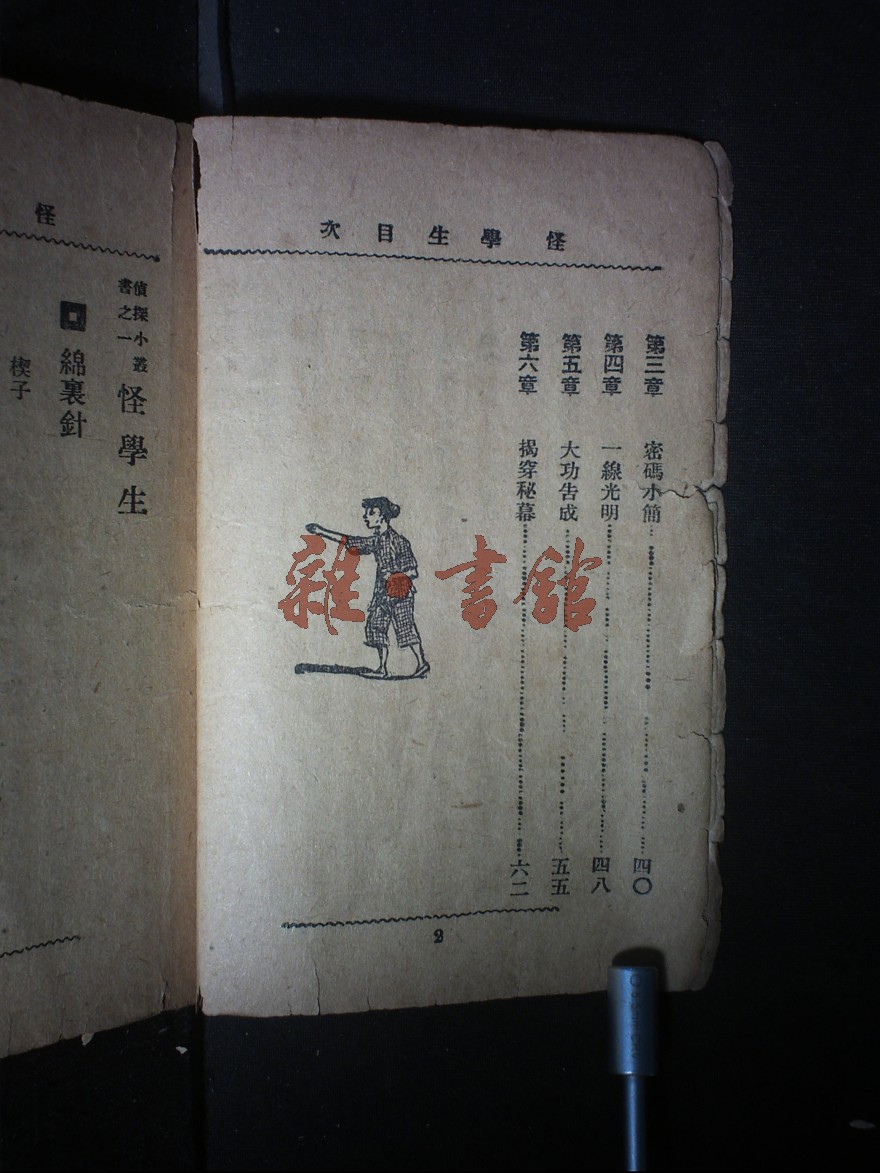 怪學生目次
第三章 密碼小簡 四〇
第四章 一線光明 四八
第五章 大功告成 五五
第六章 揭穿秘幕 六二
2
怪
偵探小叢書之一 怪學生
綿裏針
楔子
雜·書館